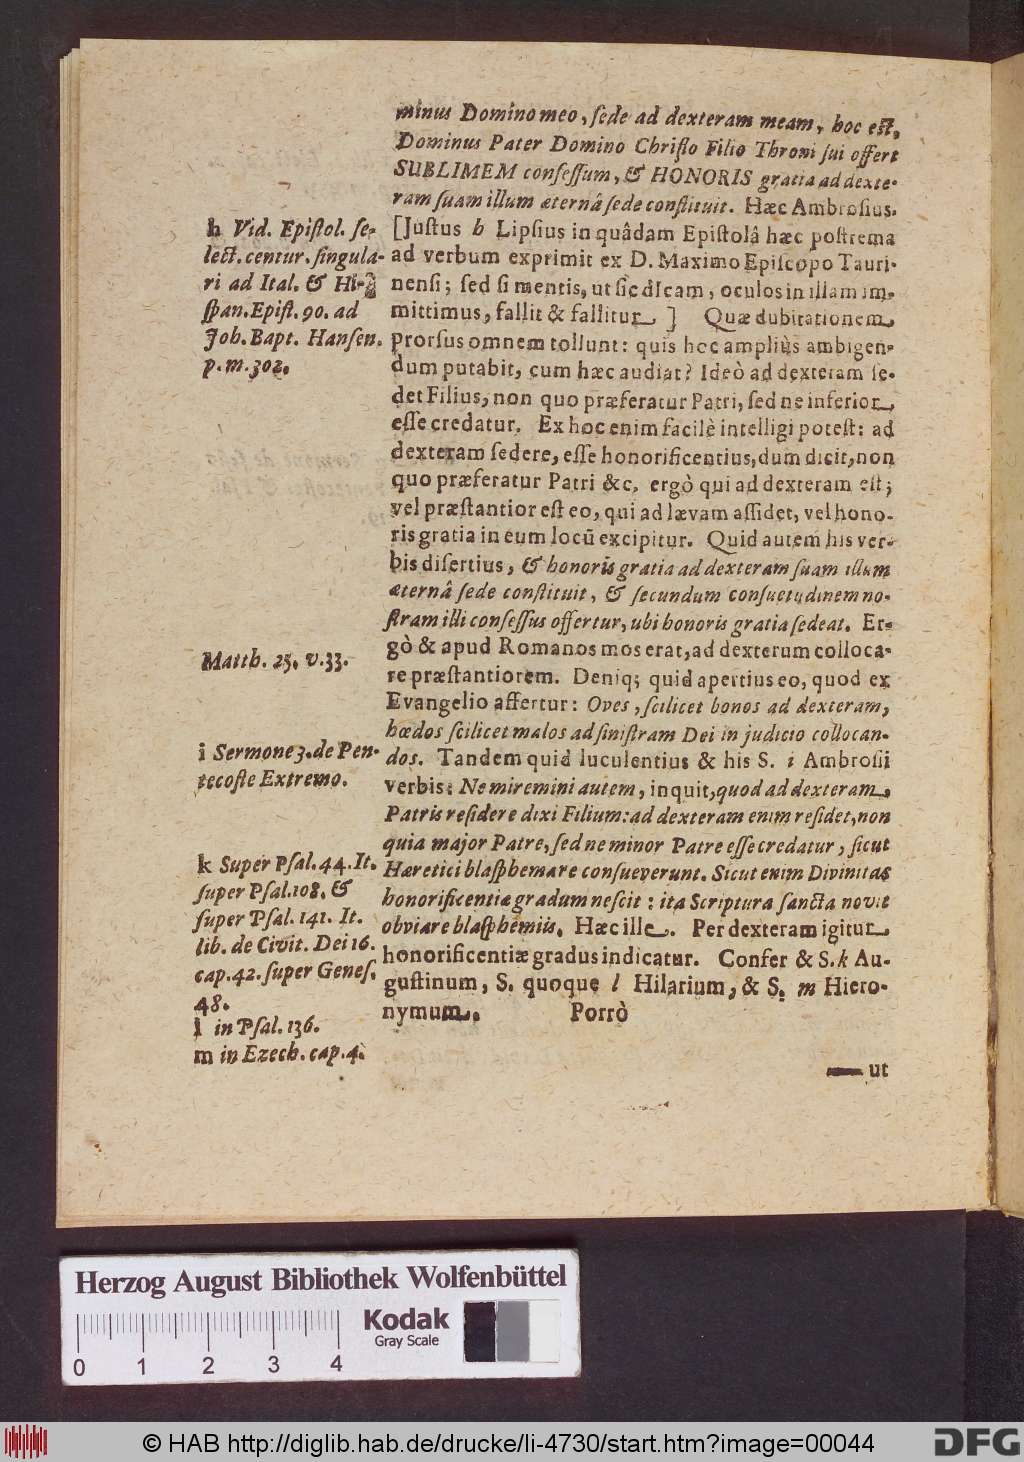 minus Domino meo, ſede ad dexteram meam, hoc eſt,
Dominus Pater Domino Chriſto Filio Throni ſui offert
SUBLIMEM conſeſſum, & HONORIS gratia ad dexte-
ram ſuam illum æternâ ſede conſtituit. Hæc Ambroſius.
[Juſtus h Lipſius in quâdam Epiſtolâ hæc poſtrema
ad verbum exprimit ex D. Maximo Epiſcopo Tauri-
nenſi; ſed ſi mentis, ut ſic dicam, oculos in illam im-
mittimus, fallit & fallitur.] Quæ dubitationem
prorſus omnem tollunt: quis hoc ampliùs ambigen-
dum putabit, cum hæc audiat? Ideò ad dexteram ſe-
det Filius, non quo præferatur Patri, ſed ne inferior
eſſe credatur. Ex hoc enim facilè intelligi poteſt: ad
dexteram ſedere, eſſe honorificentius, dum dicit, non
quo præferatur Patri &c. ergò qui ad dexteram eſt;
vel præſtantior eſt eo, qui ad lævam aſſidet, vel hono-
ris gratia in eum locũ excipitur. Quid autem his ver-
bis diſertius, & honoris gratia ad dexteram ſuam illum
æternâ ſede conſtituit, & ſecundum conſuetudinem no-
ſtram illi conſeſſus offertur, ubi honoris gratia ſedeat. Er-
gò & apud Romanos mos erat, ad dexterum colloca-
re præſtantiorem. Deniq; quid apertius eo, quod ex
Evangelio affertur: Oves, ſcilicet bonos ad dexteram,
hœdos ſcilicet malos ad ſiniſtram Dei in judicio collocan-
dos. Tandem quid luculentius & his S. i Ambroſii
verbis: Ne miremini autem, inquit, quod ad dexteram
Patris reſidere dixi Filium: ad dexteram enim reſidet, non
quia major Patre, ſed ne minor Patre eſſe credatur, ſicut
Hæretici blaſphemare conſueverunt. Sicut enim Divinitas
honorificentiæ gradum neſcit: ita Scriptura ſancta novit
obviare blaſphemiis. Hæc ille. Per dexteram igitur
honorificentiæ gradus indicatur. Confer & S. k Au-
guſtinum, S. quoque l Hilarium, & S. m Hiero-
nymum. Porrò
ut
h Vid. Epiſtol. ſe-
lect. centur. ſingula-
ri ad Ital. & Hi-
ſpan. Epiſt. 90. ad
Joh. Bapt. Hanſen.
p. m. 302.
Matth. 25. v. 33.
i Sermone 3. de Pen-
tecoſte Extremo.
k Super Pſal. 44. It.
ſuper Pſal. 108. &
ſuper Pſal. 141. It.
lib. de Civit. Dei 16.
cap. 42. ſuper Geneſ.
48.
l in Pſal. 136.
m in Ezech. cap. 4.
Herzog August Bibliothek Wolfenbüttel
Kodak
Gray Scale
0 1 2 3 4
© HAB http://diglib.hab.de/drucke/li-4730/start.htm?image=00044
DFG